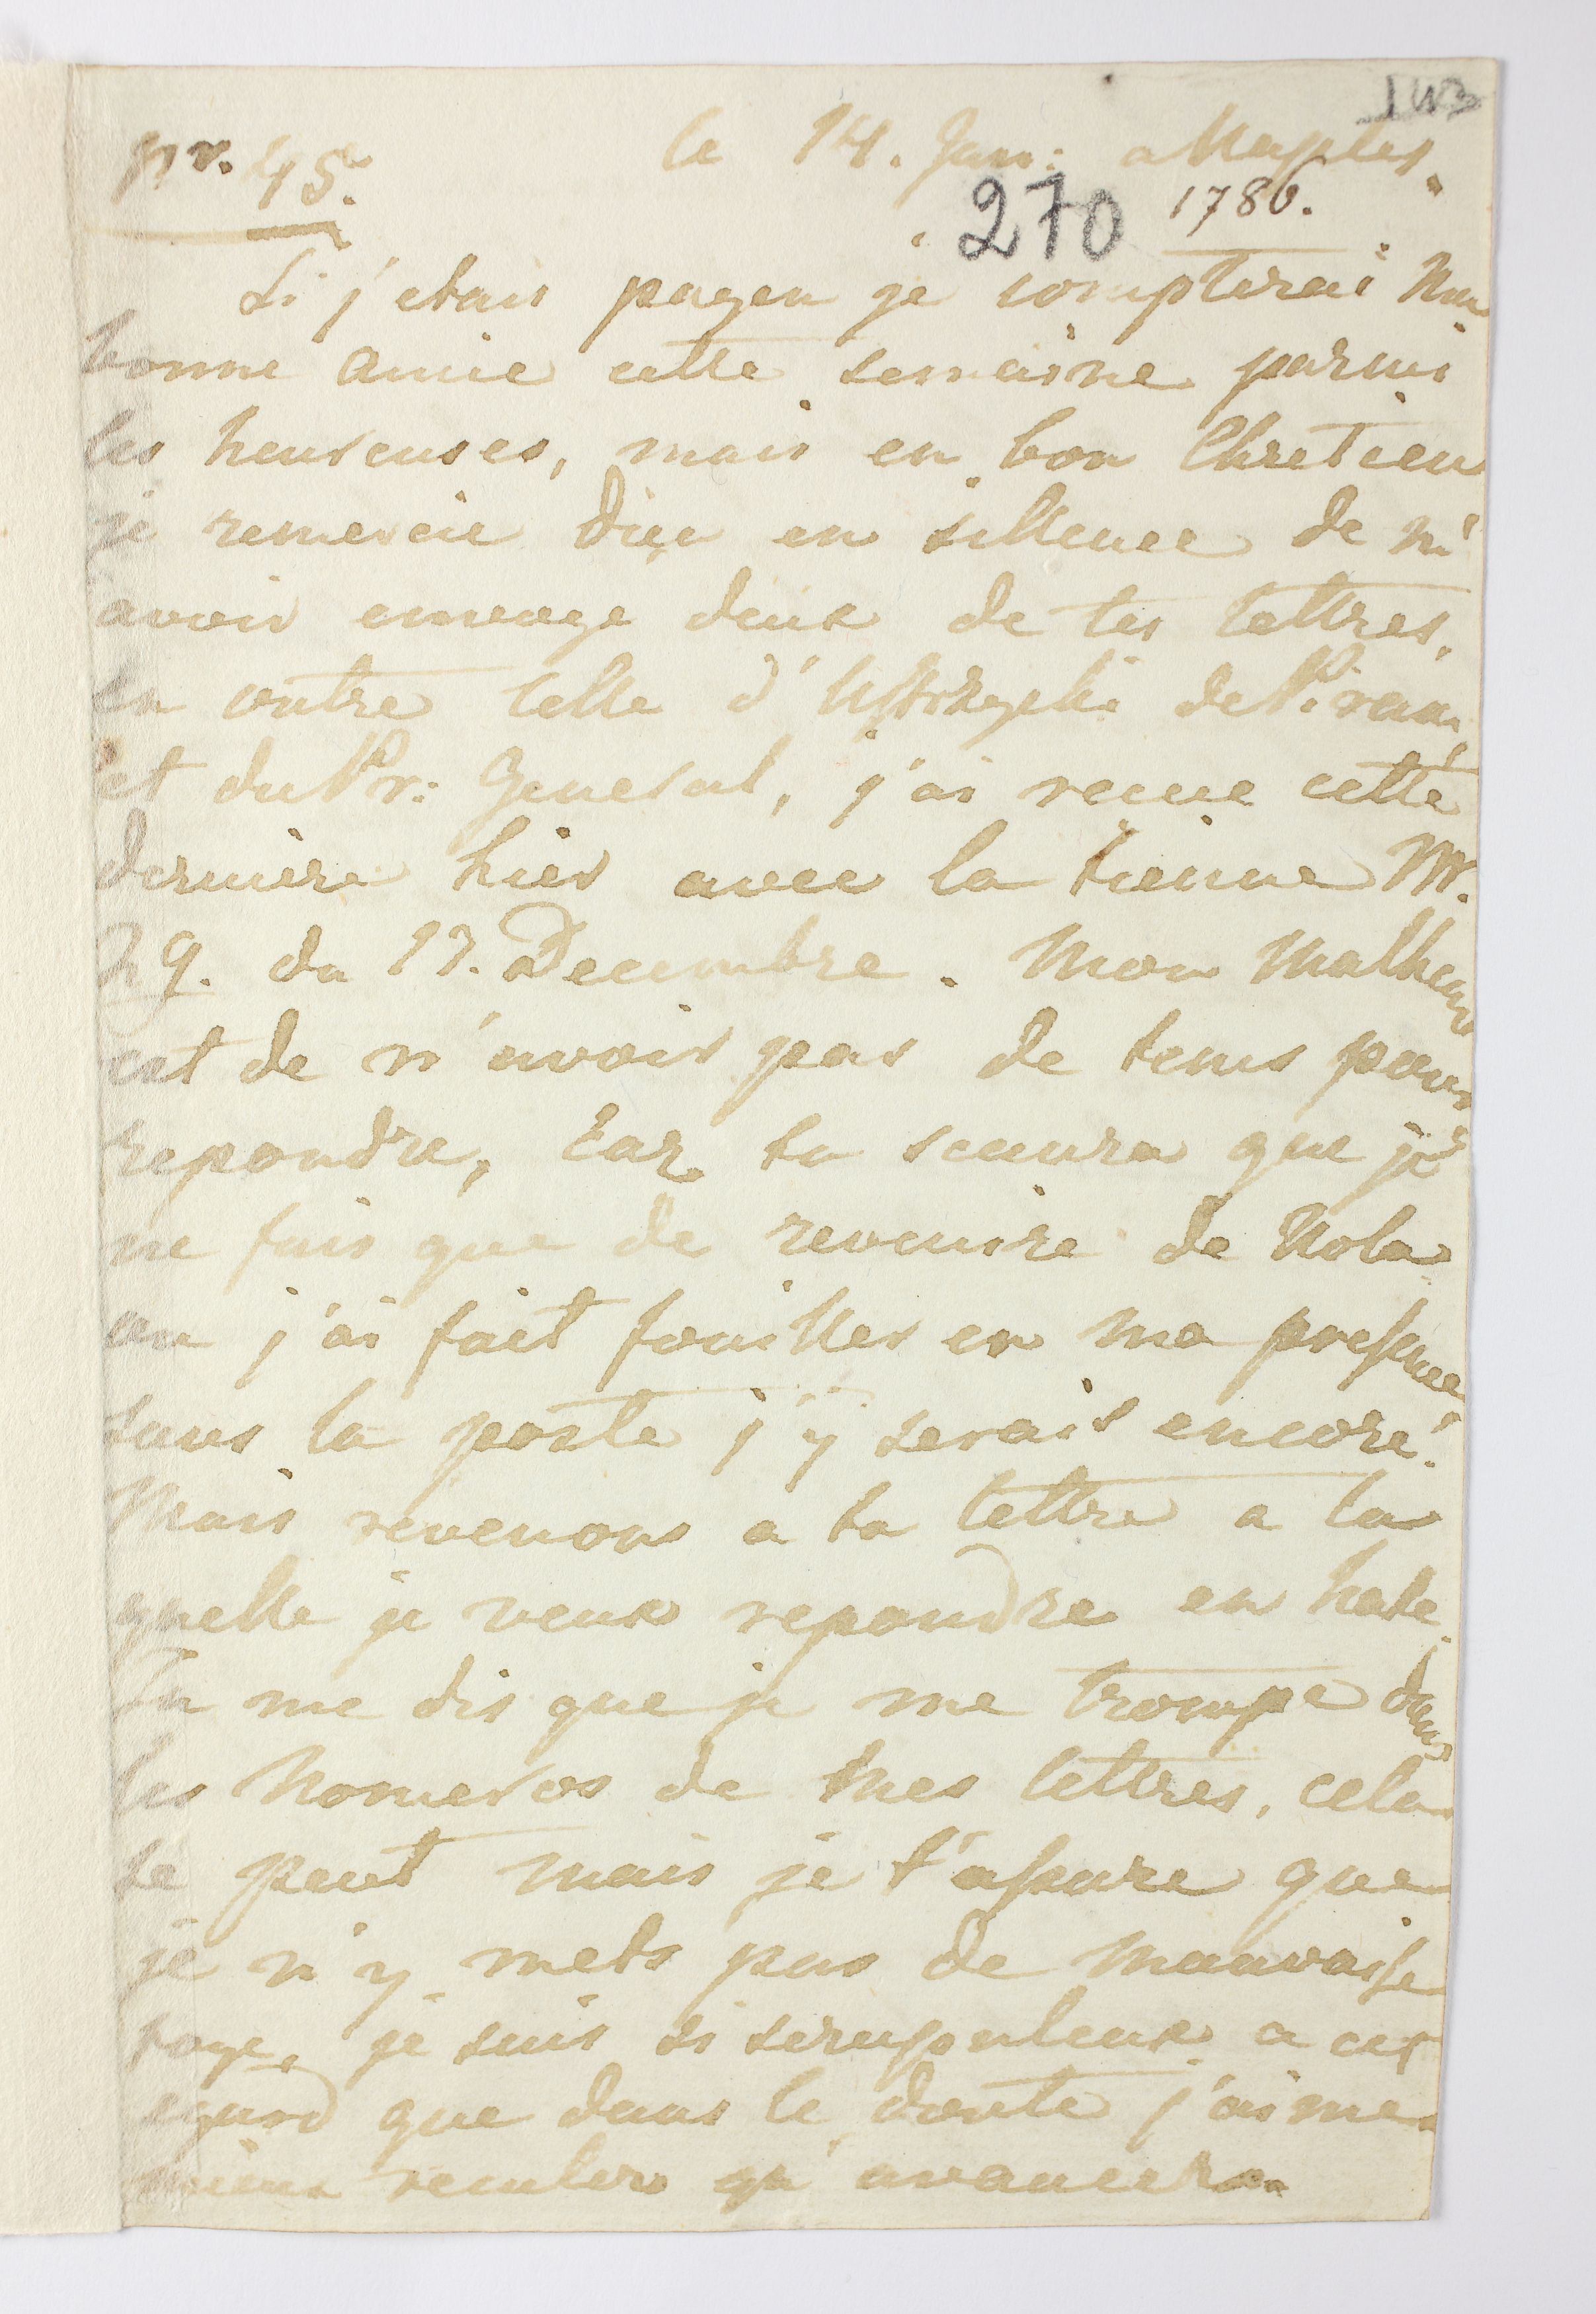 nr. 45.
le 14. Jan: a Naples.
270 1786.
Si j'etais payen je compterai Ma
bonne amie cette semaine parmi
les heureuses, mais en bon Chretien
je remercie Dieu en sillence de m'
avoir envoye deux de tes lettres,
en outre celle d'
et du Pr: General, j'ai recue cette
derniere hier avec la tienne Nr.
29. du 17. Decembre. Mon Malheur
est de n'avoir pas de tems pour
repondre, Car tu scaura que je
ne fais que de revenire de Nola
ou j'ai fait fouiller en ma presence
sans la poste j'y serais encore.
Mais revenons a ta lettre a la
quelle je veux repondre en hate.
Tu me dis que je me trompe dans
les Nomeros de mes lettres, cela
se peut mais je t'assure que
je n'y mets pas de mauvaise
foye, je suis si scrupuleux a cet
egard que dans le doute j'aime
mieux reculer qu'avancer